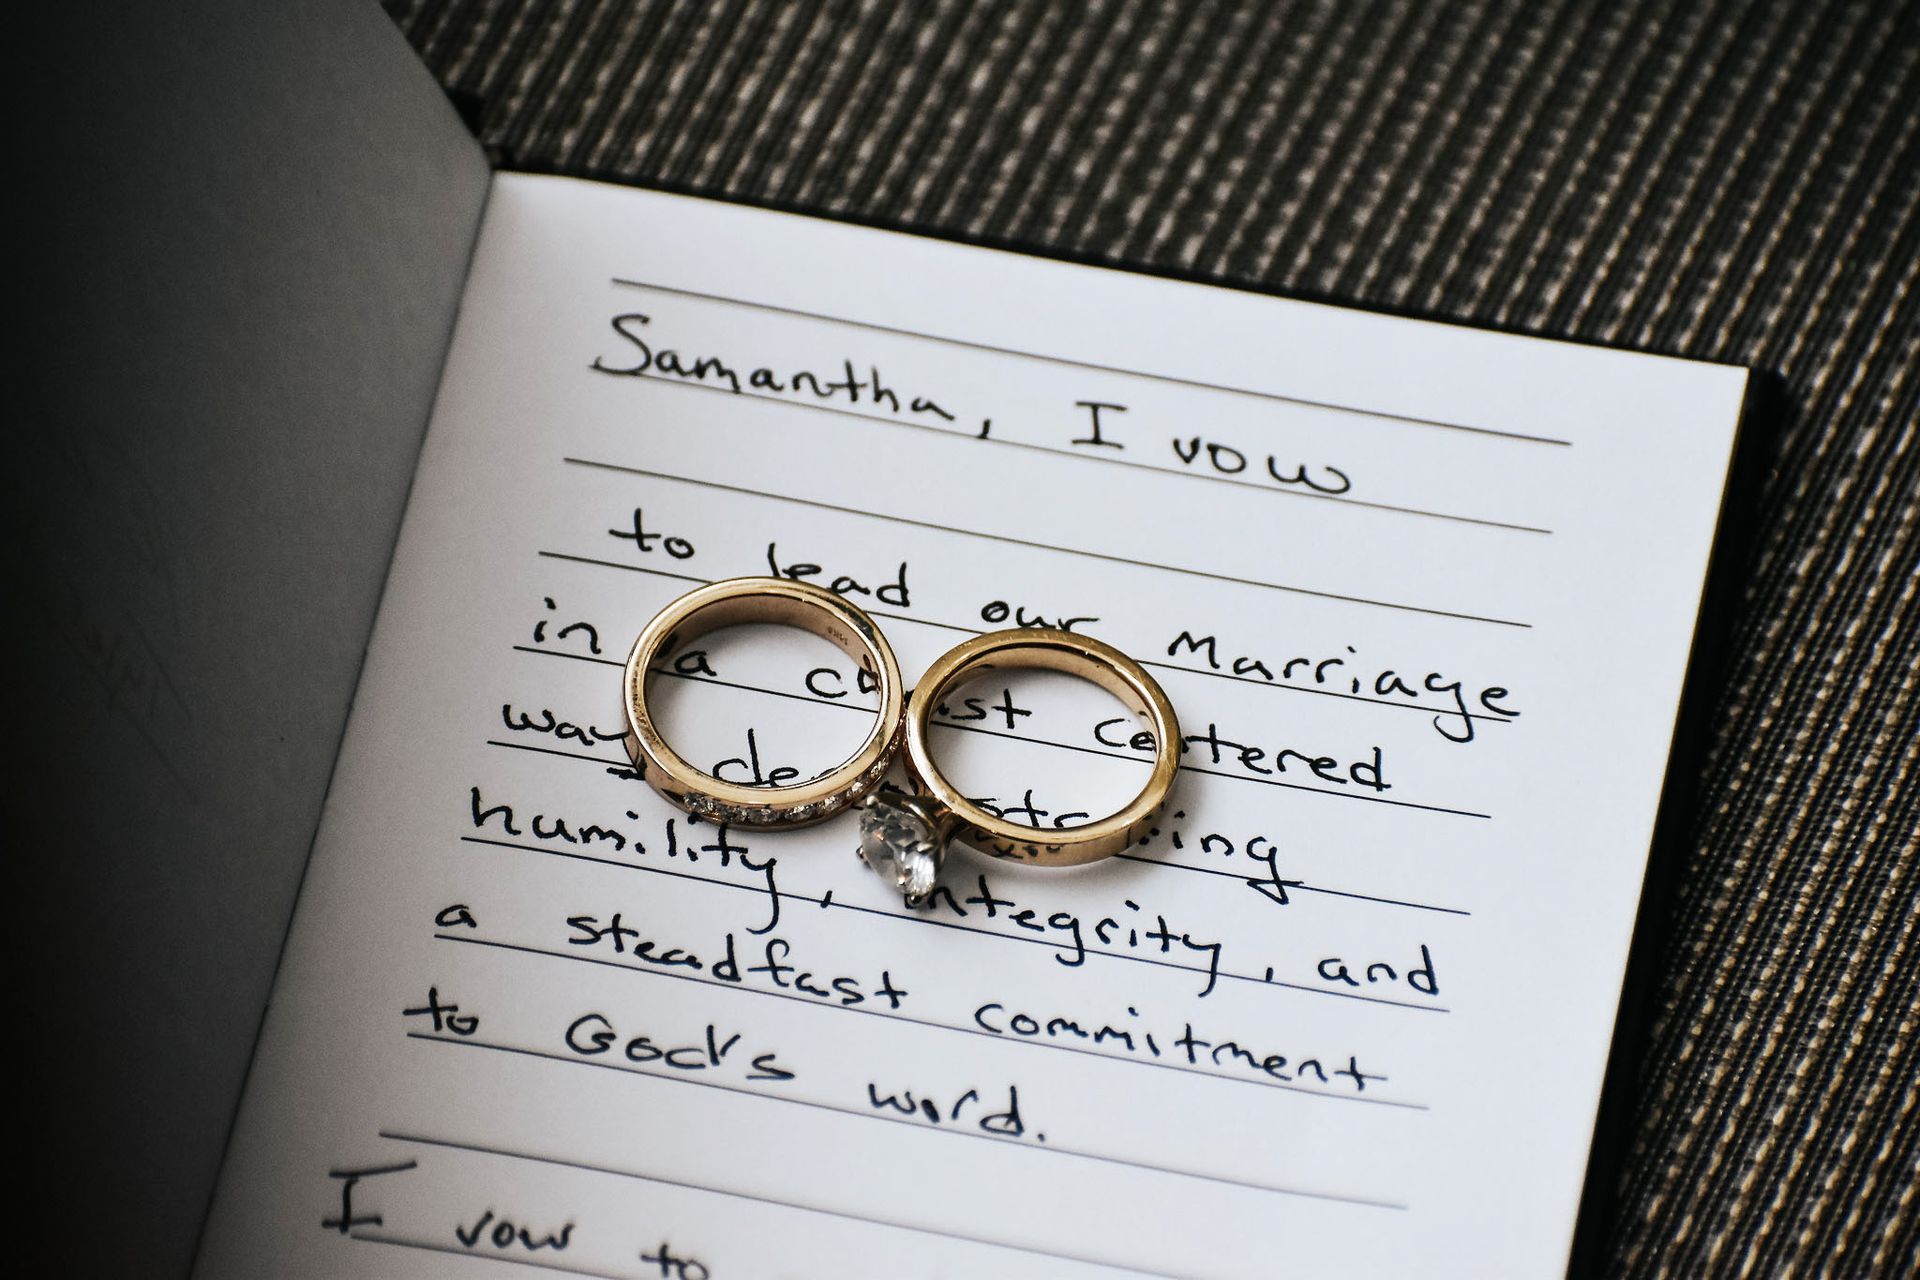 Samantha, I vow
to lead our Marriage
in a christ centered
way demonstrating
humility, integrity, and
a steadfast commitment
to God's word.
I vow to